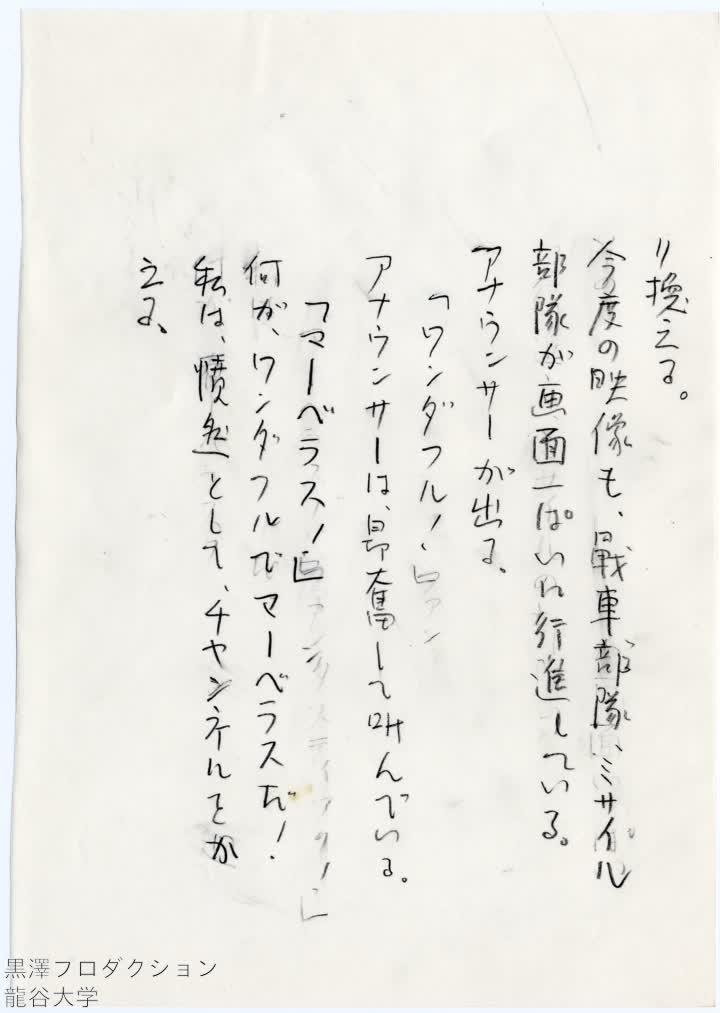 り換える。
今度の映像も、戦車部隊、ミサイル
部隊が画面一ぱいに行進している。
アナウンサーが出る。
「ワンダフル！」
アナウンサーは、昂奮して叫んでいる。
「マーベラス！」
何が、ワンダフルでマーベラスだ！
私は、憤然として、チャンネルをか
える、
黒澤プロダクション
龍谷大学